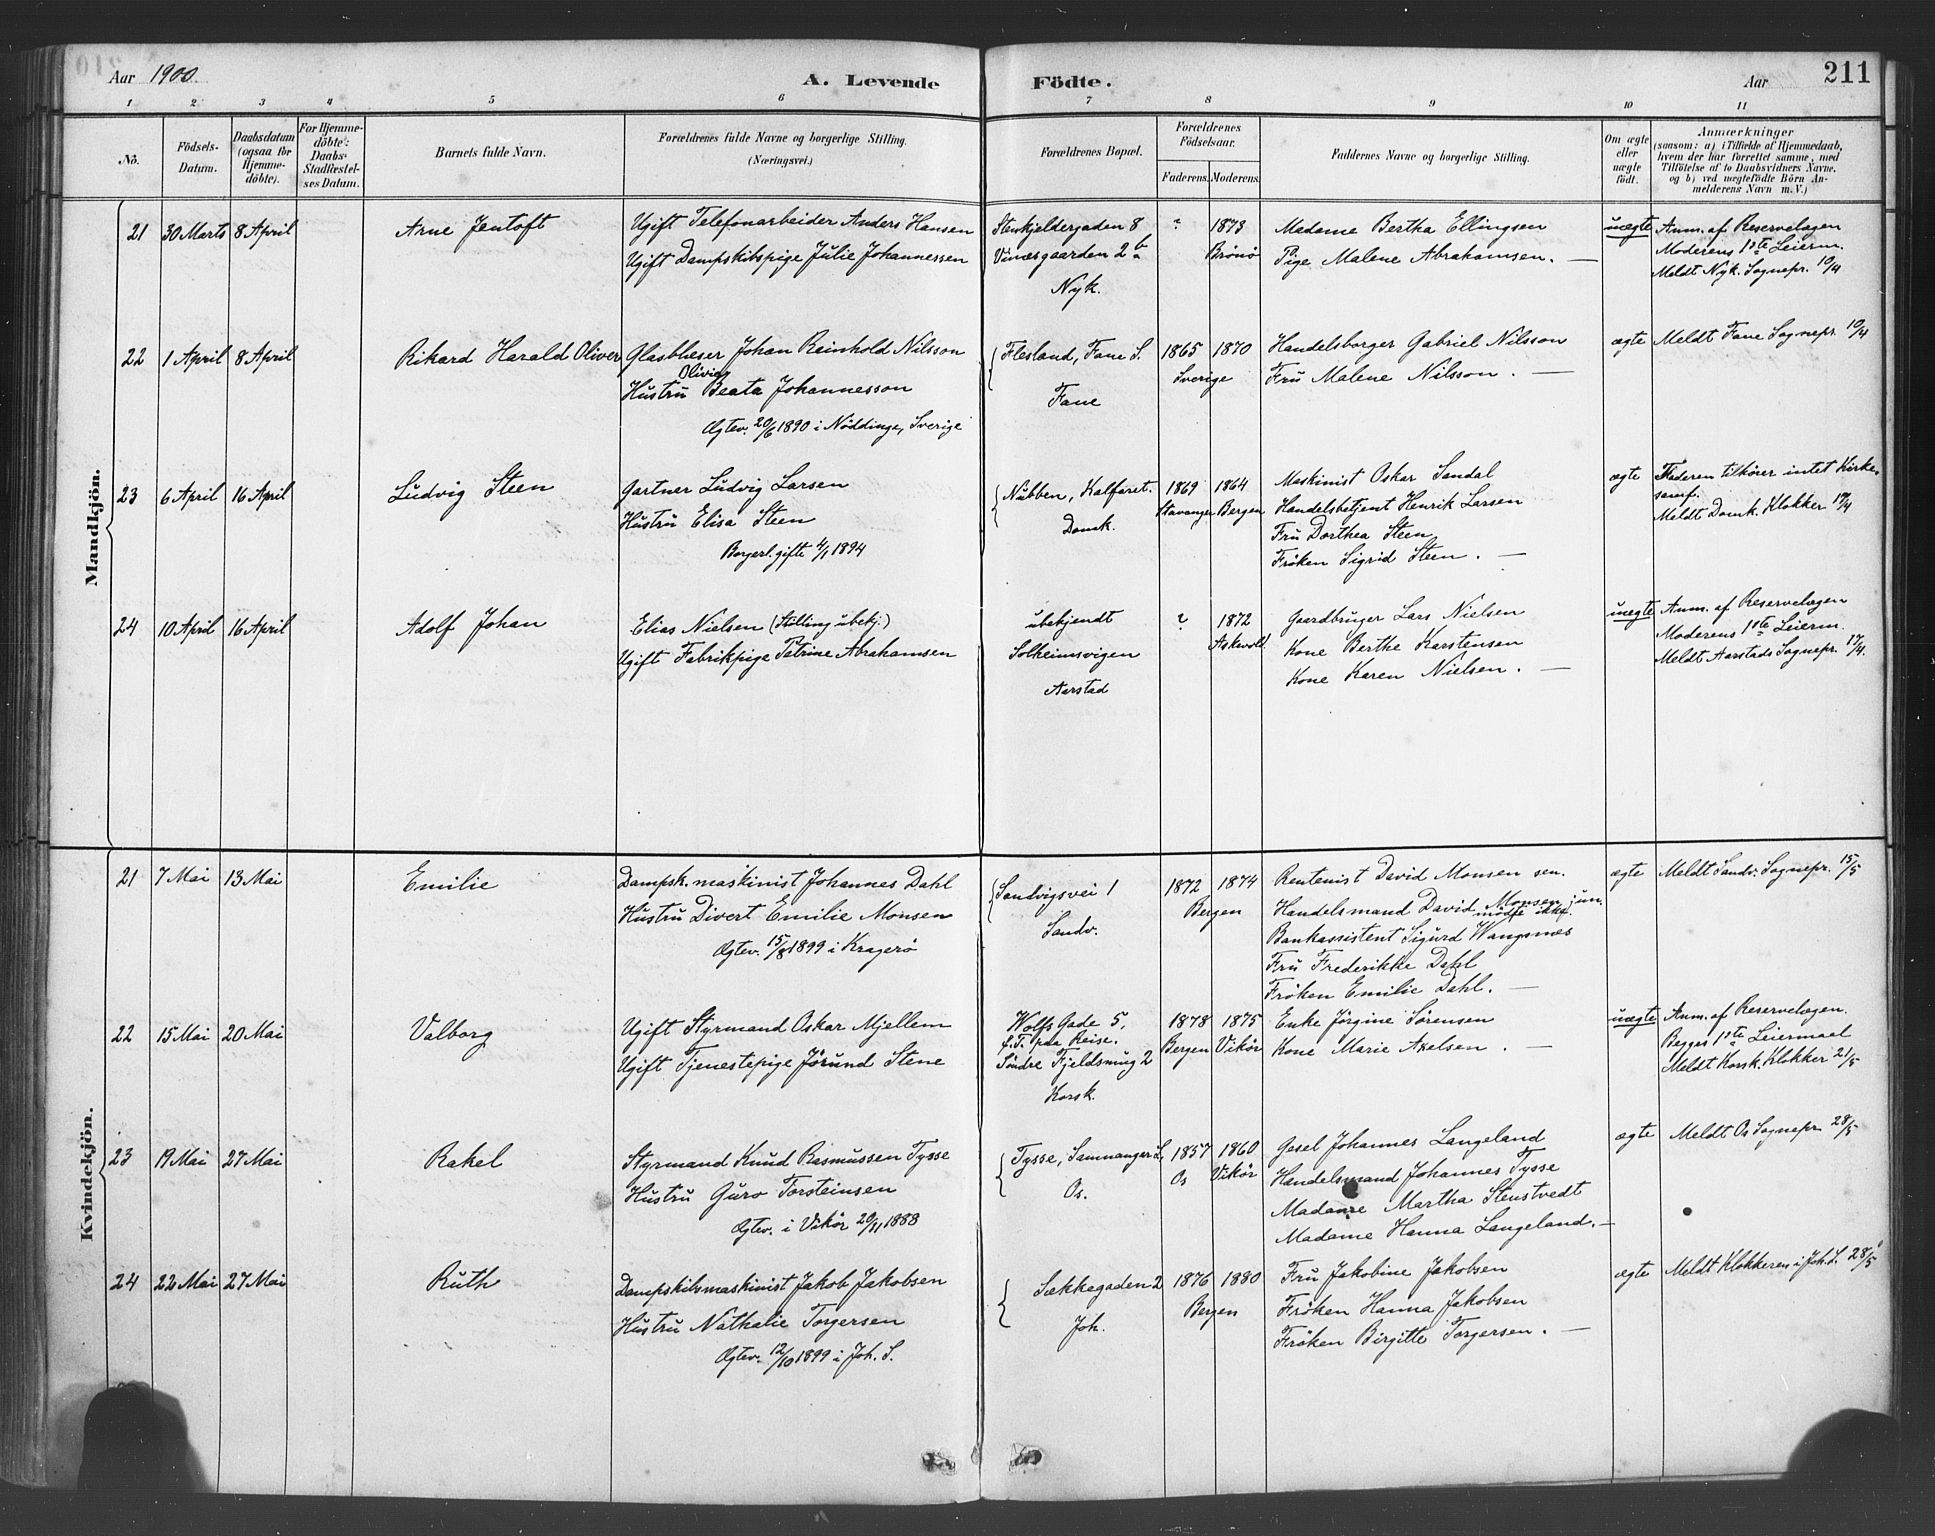 Aar 1900. A. Levende Födte. Aar 211
1 2 3 4 5 6 7 8 9 10 11
No. Födsels-Datum. Daabsdatum (ogsaa for Hjemme-döbte). For Hjemme-döbte: Daabs-Stadfæstel-ses Datum. Barnets fulde Navn. Forældrenes fulde Navne og borgerlige Stilling. (Næringsvei.) Forældrenes Bopæl. Forældrenes Födselsaar. Faderens. Moderens. Faddernes Navne og borgerlige Stilling. Om ægte eller uægte födt. Anmærkninger (saasom: a) i Tilfælde af Hjemmedaab, hvem der har forrettet samme, med Tilföielse af to Daabsvidners Navne, og b) ved uægtefödte Börn An-melderens Navn m. V.)
Mandkjön.
21 30 Marts 8 April Arne Jentoft Ugift Telefonarbeider Anders Hansen Stenkjeldergaden 8 ? 1873 Madame Bertha Ellingsen uægte Anm. af Reservelægen
Ugift Dampskibspige Julie Johannessen Vinæsgaarden 2b Brönö Pige Malene Abrahamsen. — Moderens 1ste Leierm.
Nyk. Meldt Nyk. Sognepr. 10/4
22 1 April 8 April Rikard Harald Oliver Glasblæser Johan Reinhold Nilsson Flesland, Fane S. 1865 1870 Handelsborger Gabriel Nilsson ægte Meldt Fane Sognepr. 10/4
Olivia
Hustru Beata Johannesson Fane Sverige Fru Malene Nilsson. —
Ægtev. 20/6 1890 i Nöddinge, Sverige
23 6 April 16 April Ludvig Steen Gartner Ludvig Larsen Nubben, Kalfaret. 1869 1864 Maskinist Oskar Sandal ægte Faderen tilhörer intet Kirke-
Hustru Elisa Steen Domk. Stavanger Bergen Handelsbetjent Henrik Larsen samf.
Borgerl. gifte 4/1 1894 Fru Dorthea Steen Meldt Domk. Klokker 17/4
Fröken Sigrid Steen. —
24 10 April 16 April Adolf Johan Elias Nielsen (Stilling ubekj.) ubekjendt ? 1872 Gaardbruger Lars Nielsen uægte Anm. af Reservelægen
Ugift Fabrikpige Petrine Abrahamsen Solheimsvigen Askevold Kone Berthe Karstensen Moderens 1ste Leierm.
Aarstad Kone Karen Nielsen. — Meldt Aarstads Sognepr. 17/4.
Kvindekjön.
21 7 Mai 13 Mai Emilie Dampsk.maskinist Johannes Dahl Sandvigsvei 1 1872 1874 Rentenist David Monsen sen. ægte Meldt Sandv. Sognepr. 15/5
Hustru Divert Emilie Monsen Sandv. Bergen Handelsmand David Monsen jun.
mödte ikke.
Ægtev. 15/8 1899 i Kragerö Bankassistent Sigurd Wangsnes
Fru Frederikke Dahl
Fröken Emilie Dahl. —
22 15 Mai 20 Mai Valborg Ugift Styrmand Oskar Mjellem Wolffs Gade 5, 1878 1875 Enke Jörgine Sörensen uægte Anm. af Reservelægen.
f. T. paa Reise.
Ugift Tjenestepige Jörund Stene Söndre Fjeldsmug 2 Bergen Vikör Kone Marie Axelsen. — Begges 1ste Leiermaal
Korsk. Meldt Korsk. Klokker 21/5
23 19 Mai 27 Mai Rakel Styrmand Knud Rasmussen Tysse Tysse, Samnanger S. 1857 1860 Gesel Johannes Langeland ægte Meldt Os Sognepr. 28/5
Hustru Guro Torsteinsen Os. Os Vikör Handelsmand Johannes Tysse
Ægtev. i Vikör 20/11 1888 Madame Martha Stenstvedt
Madame Hanna Langeland. —
24 22 Mai 27 Mai Ruth Dampskibsmaskinist Jakob Jakobsen Sækkegaden 2 1876 1880 Fru Jakobine Jakobsen ægte Meldt Klokkeren i Joh. S. 28/5
Hustru Nathalie Torgersen Joh. Bergen Fröken Hanna Jakobsen
Ægtev. 12/10 1899 i Joh. S. Fröken Birgitte Torgersen. —